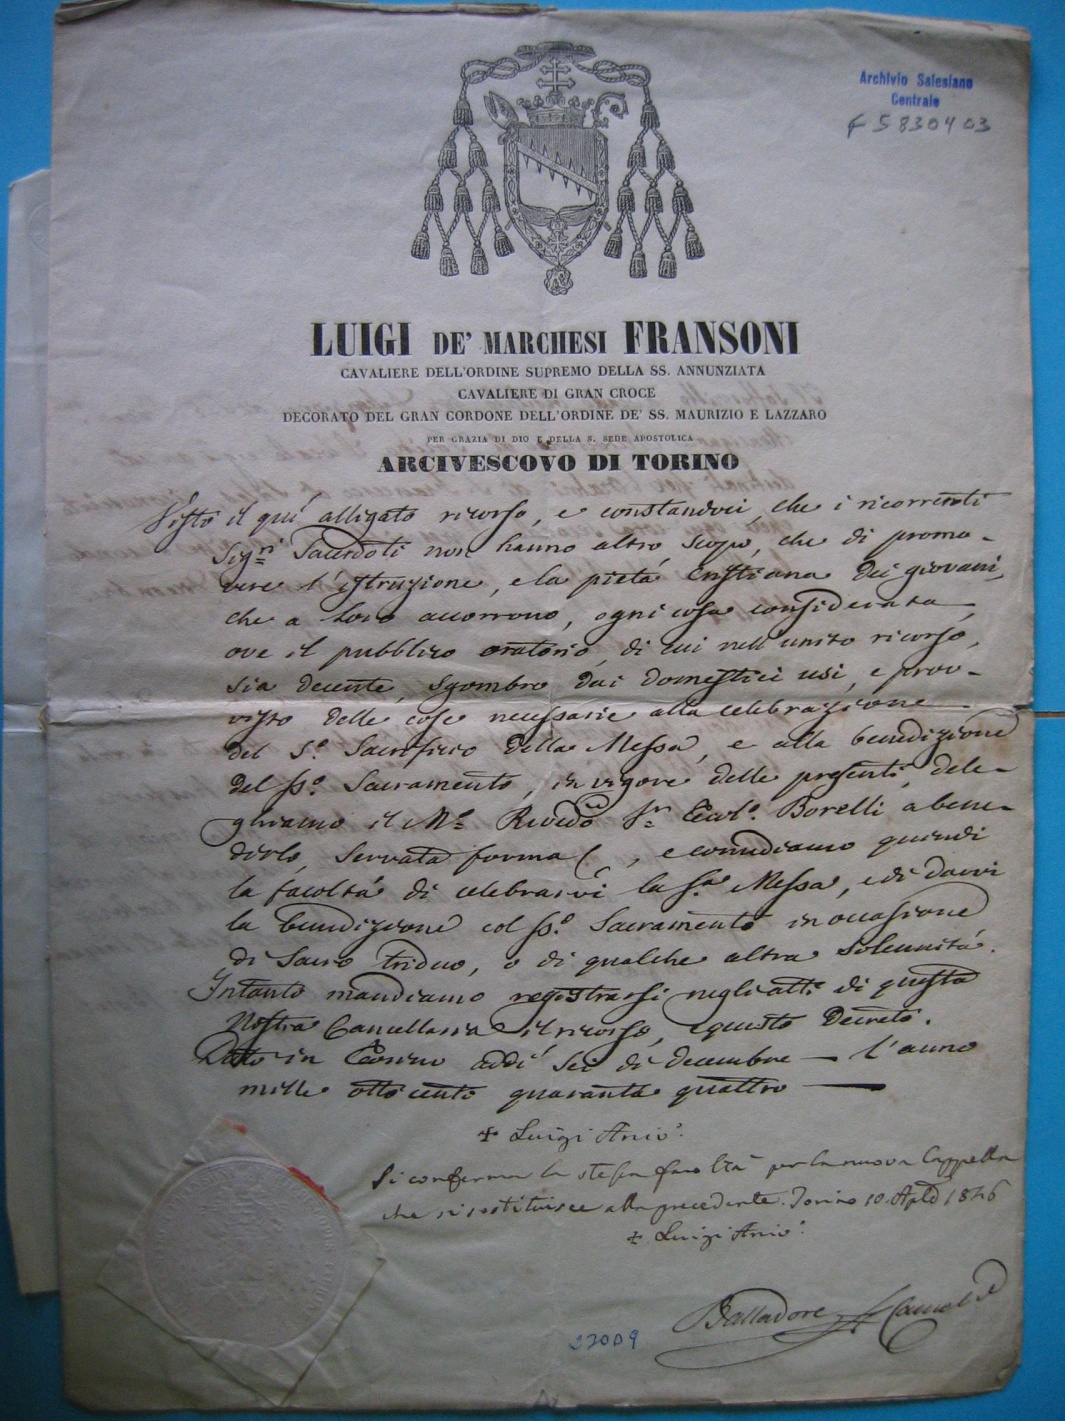 Archivio Salesiano
Centrale
f 5830403
LUIGI DE' MARCHESI FRANSONI
CAVALIERE DELL'ORDINE SUPREMO DELLA SS. ANNUNZIATA
CAVALIERE DI GRAN CROCE
DECORATO DEL GRAN CORDONE DELL'ORDINE DE' SS. MAURIZIO E LAZZARO
PER GRAZIA DI DIO E DELLA S. SEDE APOSTOLICA
ARCIVESCOVO DI TORINO
Visto il quì alligato ricorso, e constandoci, che i ricorrenti
Sig.ri Sacerdoti non hanno altro scopo, che di promo-
vere l'istruzione, e la pietá Cristiana dei giovani,
che a loro accorrono, ogni cosa considerata,
ove il pubblico oratorio, di cui nell'unito ricorso,
sia decente, sgombro dai domestici usi, e prov-
visto delle cose necessarie alla celebrazione
del S.o Sacrificio della Messa, e alla benedizione
del SS.o Sacramento, in vigore delle presenti dele-
ghiamo il M.o Revdo Sr. Teol.o Borelli a bene-
dirlo, servata forma, e concediamo quindi
la facoltá di celebrarvi la S.a Messa, e di darvi
la benedizione col SS.o Sacramento in occasione
di Sacro triduo, o di qualche altra solennitá.
Intanto mandiamo registrarsi negli atti di questa
Nostra Cancellaria il ricorso, e questo Decreto.
Dato in Torino addì sei di decembre — l'anno
mille otto cento quaranta quattro —
+ Luigi Arciv.o
Si conferma la stessa facoltà per la nuova Cappella
che si sostituisce alla precedente. Torino 10. Aple 1846
+ Luigi Arciv.o
Balladore
22009